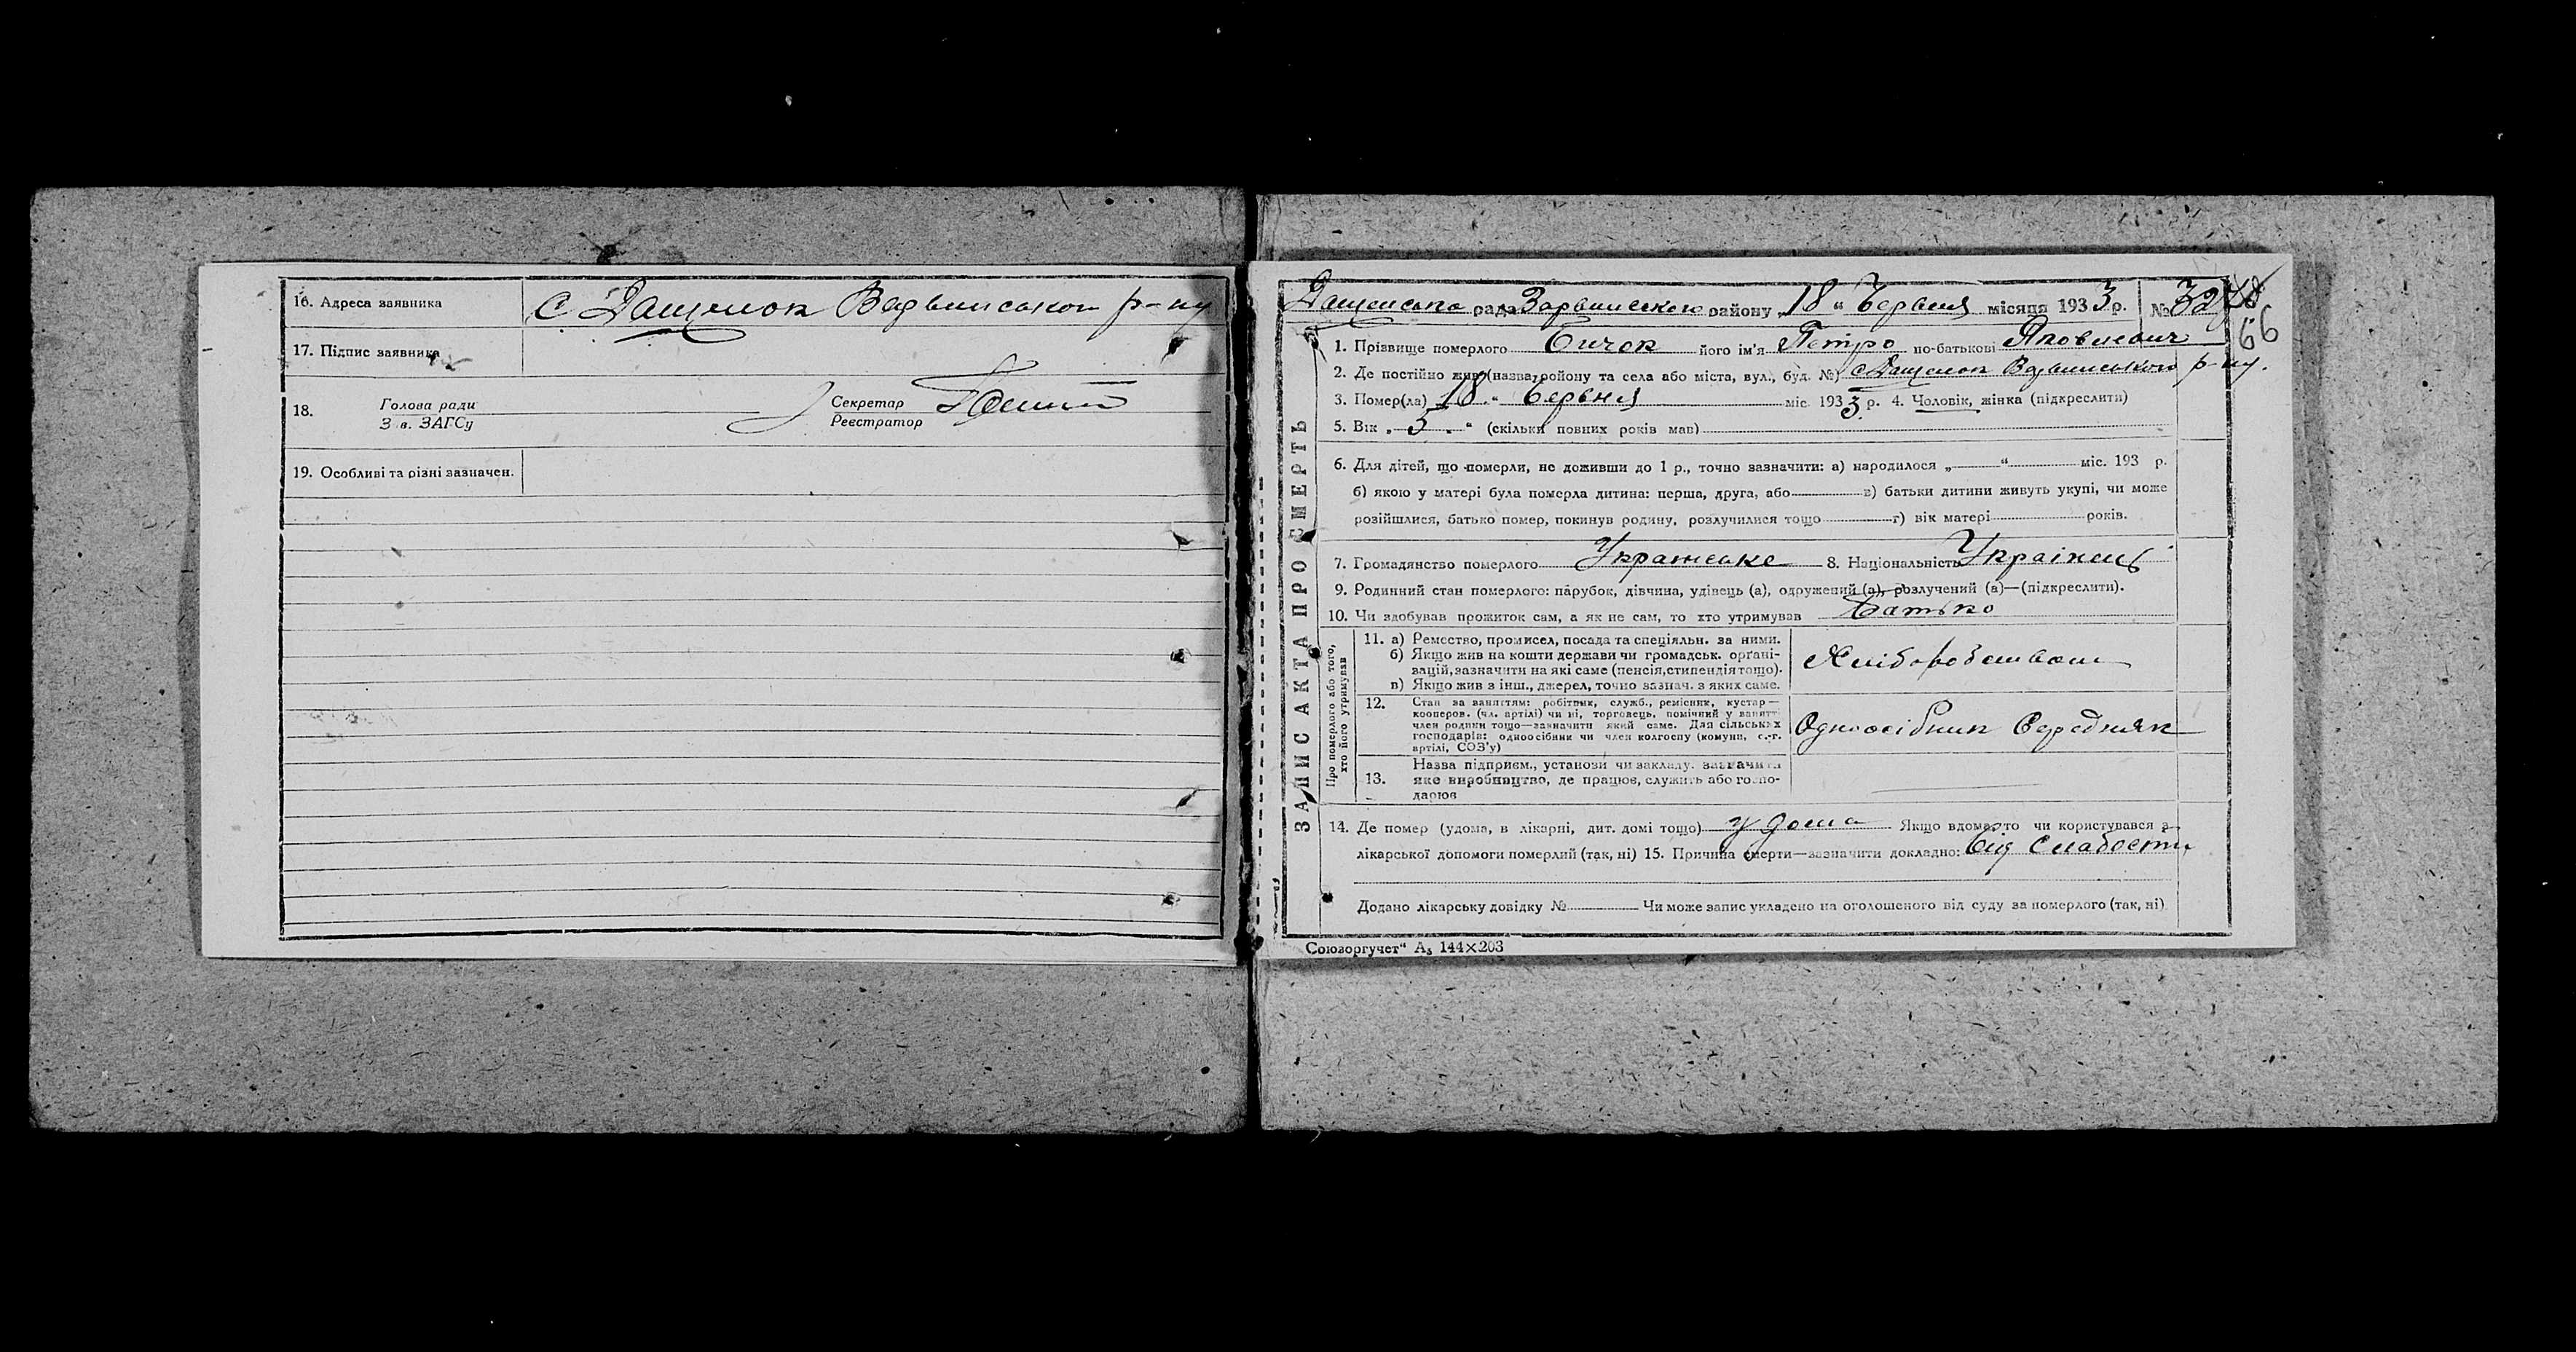 16. Адреса заявника
17. Підпис заявника
18. Голова ради
З в. ЗАГСу
Секретар
Реєстратор
19. Особливі та різні зазначен.
рада району „18“ Червня місяця 1933 р. № 32
66
1. Прізвище померлого Бичок його ім'я Петро по-батькові Якович
2. Де постійно жив (назва району та села або міста, вул., буд. №) р-ну.
3. Помер(ла) „18“ Червня міс. 1933 р. 4. Чоловік, жінка (підкреслити)
5. Вік „5“ (скільки повних років мав)
6. Для дітей, що померли, не доживши до 1 р., точно зазначити: а) народилося „ “ міс. 193 р.
б) якою у матері була померла дитина: перша, друга, або в) батьки дитини живуть укупі, чи може
розійшлися, батько помер, покинув родину, розлучилися тощо г) вік матері років.
7. Громадянство померлого Українське 8. Національність Українець
9. Родинний стан померлого: парубок, дівчина, удівець (а), одружений (а), розлучений (а)—(підкреслити).
10. Чи здобував прожиток сам, а як не сам, то хто утримував Батько
ЗАПИС АКТА ПРО СМЕРТЬ
Про померлого або того,
хто його утримував
11. а) Ремество, промисел, посада та спеціяльн. за ними.
б) Якщо жив на кошти держави чи громадськ. орґані-
зацій, зазначити на які саме (пенсія, стипендія тощо).
в) Якщо жив з інш., джерел, точно зазнач. з яких саме.
Хліборобством
12. Стан за заняттям: робітник, служб., ремісник, кустар—
кооперов. (чл. артілі) чи ні, торговець, помічний у занятті
член родини тощо—зазначити який саме. Для сільських
господарів: одноосібник чи член колгоспу (комуни, с.-г.
артілі, СОЗ'у)
Одноосібник Середняк
13. Назва підприєм., установи чи закладу. зазначити
яке виробництво, де працює, служить або госпо-
дарює
14. Де помер (удома, в лікарні, дит. домі тощо) у дома Якщо вдома, то чи користувався з
лікарської допомоги померлий (так, ні) 15. Причина смерти—зазначити докладно: Від Слабости
Додано лікарську довідку № Чи може запис укладено на оголошеного від суду за померлого (так, ні).
Союзоргучет“ А₅ 144×203